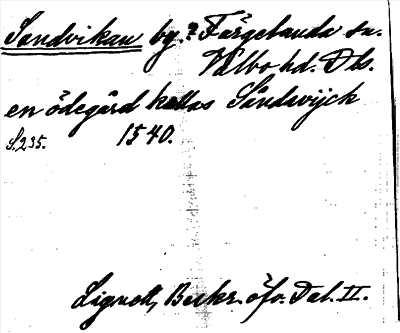 Sandvikan by.? Färgelanda sn.
Valbo hd. Dls.
en ödegård kallas Sandwijck
S. 235. 1540.
Lignell, Beskr. öfv. Dal. II.